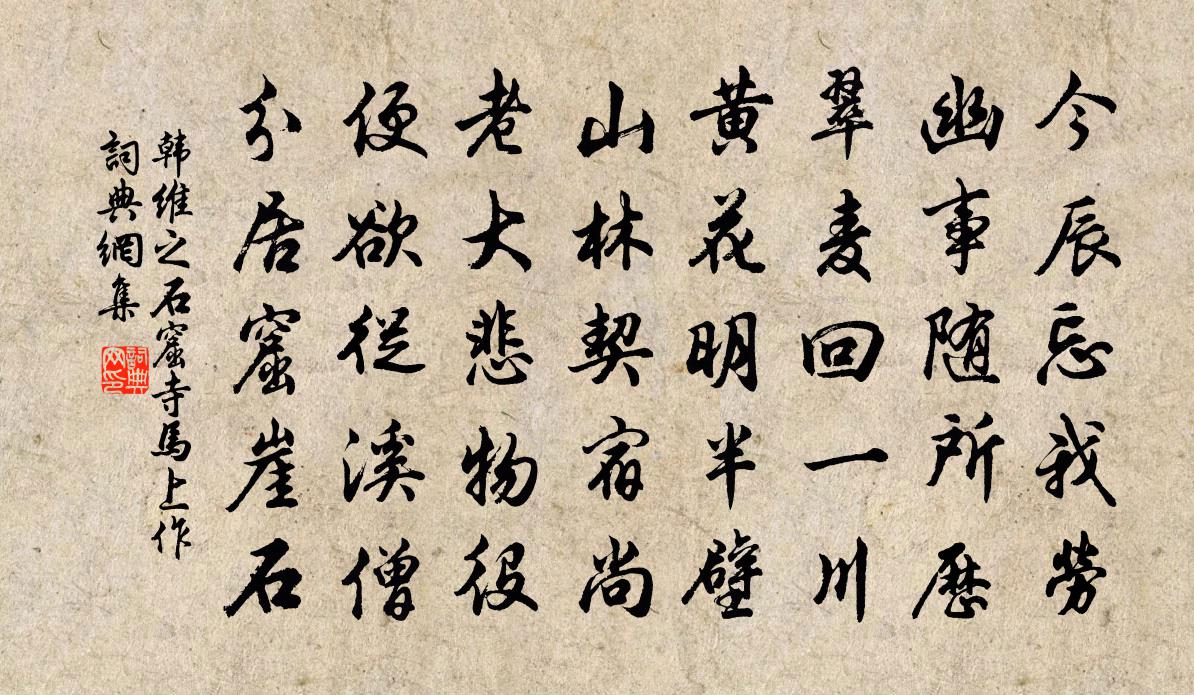 今辰忘我勞
幽事随所歷
翠麦回一川
黄花明半壁
山林契宿尚
老大悲物役
便欲從溪僧
分居窟崖石
韩維之石窟寺馬上作
詞典網集
詞典
网印